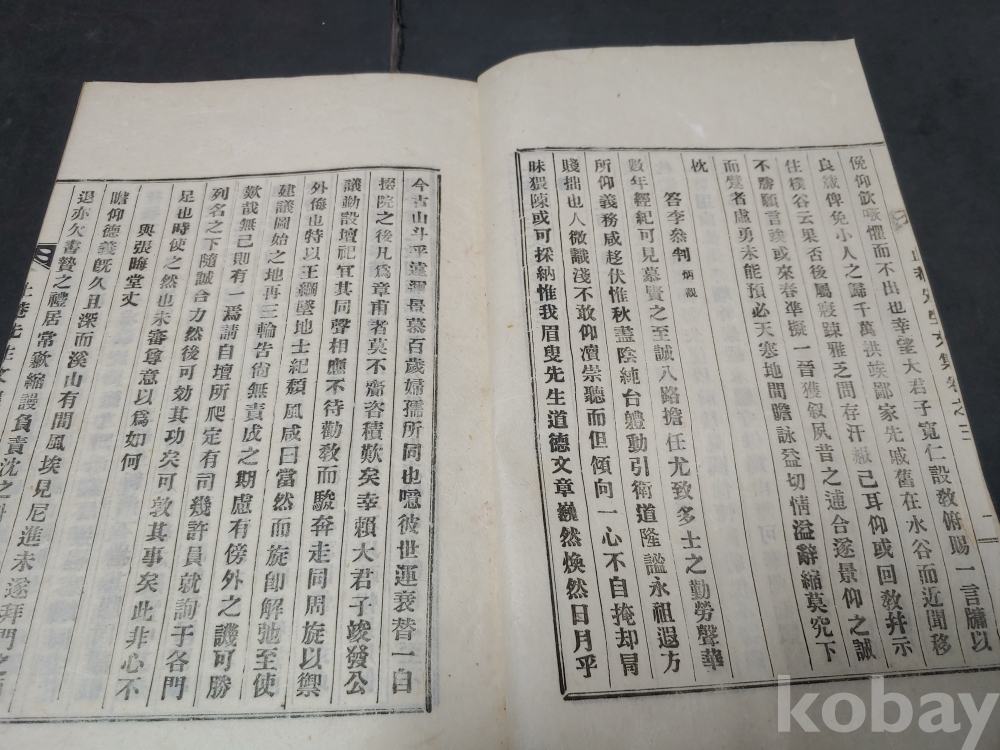 止菴先生文集卷之三
俛仰歆噬懼而不出也幸望大君子寬仁設敎俯賜一言牖以
良鍼俾免小人之歸千萬拱竢鄙家先戚舊在水谷而近聞移
住樸谷云果否後屬寢踈雅之間存汗縮已耳仰或回敎幷示
不勝願言竢或來春準擬一晉獲叙夙昔之逋合遂景仰之誠
而躄者慮勇未能預必天寒地間瞻詠益切情溢辭縮莫究下
忱
答李叅判 炳觀
數年經紀可見慕賢之至誠八路擔任尤致多士之勤勞聲華
所仰義務咸趍伏惟秋盡陰純台軆動引衛道隆謐永祖遐方
賤拙也人微識淺不敢仰凟崇聽而但傾向一心不自掩却局
昧猥陳或可採納惟我眉叟先生道德文章巍然煥然日月乎
今古山斗乎遠邇景慕百歲婦孺所同也噫彼世運衰替一自
撤院之後凡爲章甫者莫不齎咨積歎矣幸賴大君子竣發公
議勸設壇祀㝠其同聲相應不待勸敎而駿奔走同周旋以禦
外侮也特以王綱墜地士紀頹風咸曰當然而旋卽解弛至使
建議圖始之地再三輪告尙無責成之期慮有傍外之譏可勝
歎哉無已則有一焉請自壇所爬定有司幾許員就詢于各門
列名之下隨誠合力然後可効其功矣可敦其事矣此非心不
足也時使之然也未審尊意以爲如何
與張晦堂丈
瞻仰德義旣久且深而溪山有間風埃見尼進未遂拜門之
退亦欠書贄之禮居常歉縮謾負責沈之
止菴先生文
kobay